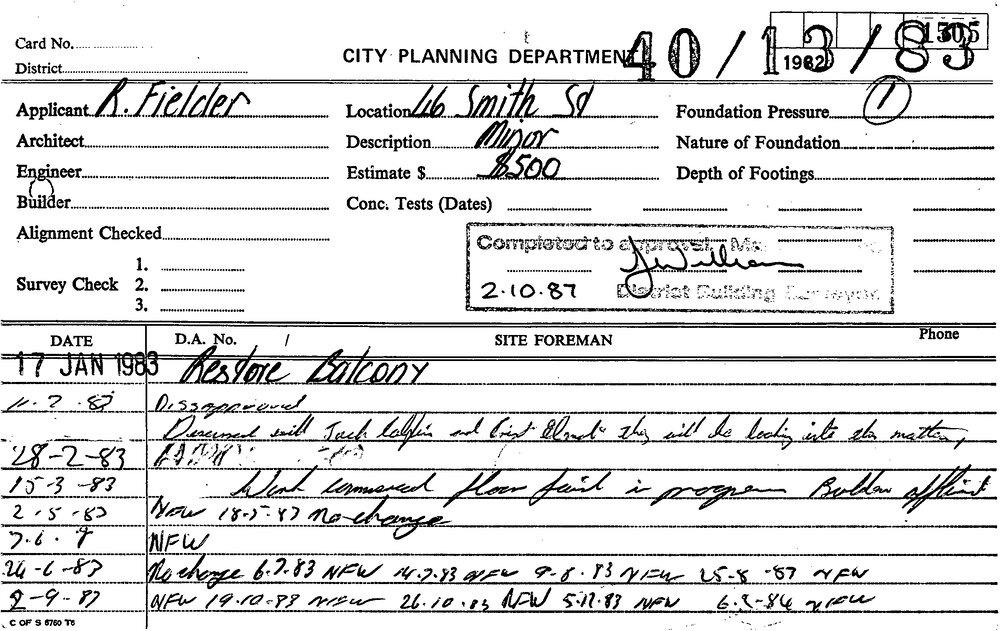 1505
Card No.
CITY PLANNING DEPARTMENT 40/13/83
1982
District
Applicant R. Fielder Location 46 Smith St Foundation Pressure 1
Architect Description Minor Nature of Foundation
Engineer Estimate $ $500 Depth of Footings
Builder Conc. Tests (Dates)
Alignment Checked
Completed to approval.
Survey Check 1.
2.
3.
2.10.87 District Building Surveyor
DATE D.A. No. / SITE FOREMAN Phone
17 JAN 1983 Restore Balcony
Disapproved
will Jack and they will be looking into the matter,
28-2-83
15-3-83 Work commenced floor in progress
2.5.83 NFW 18.5.83 No change
NFW
No change 6.7.83 NFW 14.7.83 NFW 9-8.83 NFW 25-8-83 NFW
NFW 19.10.83 NFW 26.10.83 NFW NFW NFW
C OF S 6760 T6